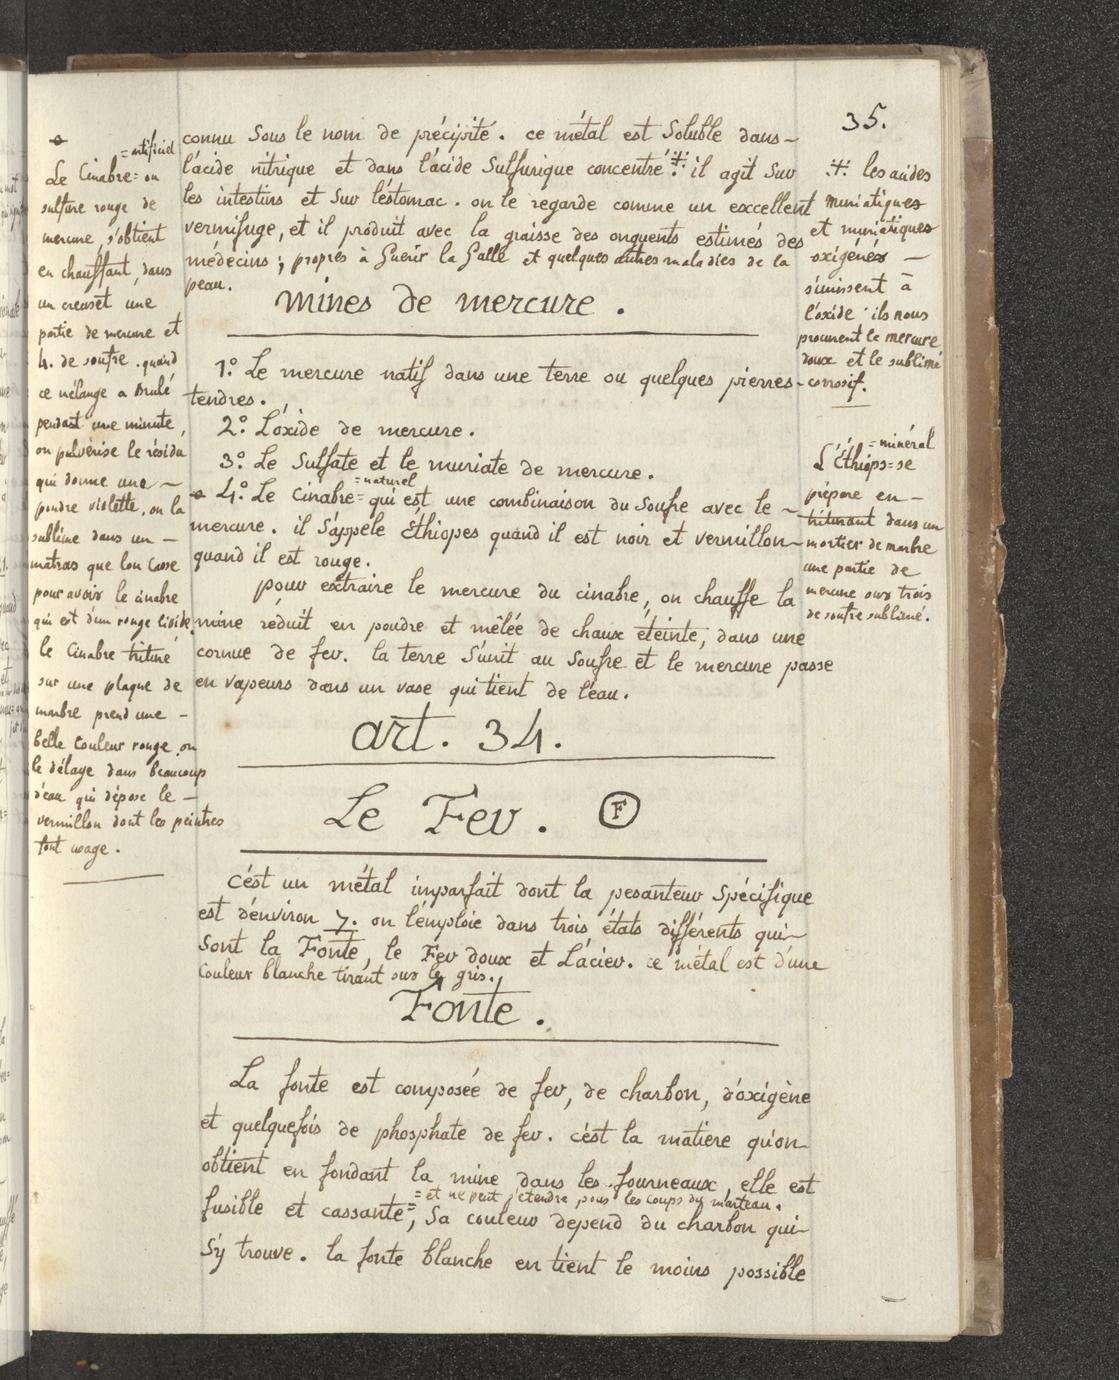 35.
connu Sous le nom de précipité. ce métal est Soluble dans
l'acide nitrique et dans l'acide Sulfurique concentré ⁜ il agit Sur
les intestins et Sur léstomac. on le regarde comme un excellent
vermifuge, et il produit avec la graisse des onguents estimés des
médecins; propres à Guérir la Galle et quelques autres maladies de la
peau.
mines de mercure.
1º. Le mercure natif dans une terre ou quelques pierres
tendres.
2º. L'oxide de mercure.
3º. Le Sulfate et le muriate de mercure.
=naturel
4º. Le Cinabre= qui est une combinaison du Soufre avec le
mercure. il S'appele Éthiopes quand il est noir et vermillon
quand il est rouge.
pour extraire le mercure du cinabre, on chauffe la
mine réduit en poudre et mêlée de chaux éteinte, dans une
cornue de fer. la terre S'unit au Soufre et le mercure passe
en vapeurs dans un vase qui tient de l'eau.
art. 34.
Le Fer. F
C'est un métal imparfait dont la pesanteur Spécifique
est d'environ 7. on l'emploie dans trois états différents qui
Sont la Fonte, le Fer doux et L'acier. ce métal est d'une
Couleur blanche tirant sur le gris.
Fonte.
La fonte est composée de fer, de charbon, d'oxigène
et quelquefois de phosphate de fer. c'ést la matiere qu'on
obtient en fondant la mine dans les fourneaux, elle est
= et ne peut s'etendre sous les coups du marteau.
fusible et cassante=, Sa couleur depend du charbon qui
S'y trouve. la fonte blanche en tient le moins possible
=artificiel
Le Cinabre= ou
sulfure rouge de
mercure, s'obtient
en chauffant, dans
un creuset une
partie de mercure et
4. de soufre. quand
ce mélange a Brulé
pendant une minute,
on pulvérise le résidu
qui donne une
poudre violette. on la
sublime dans un
matras que l'on Casse
pour avoir le cinabre
qui est d'un rouge livide.
le Cinabre trituré
sur une plaque de
marbre prend une
belle Couleur rouge. on
le délaye dans beaucoup
d'eau qui dépose le
vermillon dont les peintres
font usage.
⁜ les acides
muriatiques
et muriatiques
oxigénés
s'unissent à
l'oxide. ils nous
procurent le mercure
doux et le sublimé
corrosif.
=minéral
L'Éthiops= se
prépare en
triturant dans un
mortier de marbre
une partie de
mercure sur trois
de soufre sublimé.